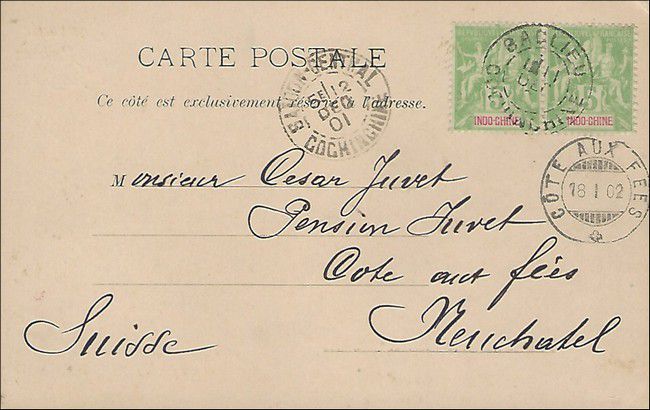 CARTE POSTALE
Ce côté est exclusivement réservé à l'adresse.
Monsieur Cesar Juvet
Pension Juvet
Cote aux fées
Neuchatel
Suisse
SAIGON-CENTRAL
12
DEC
01
COCHINCHINE
BACLIEU
COCHINCHINE
INDO-CHINE
INDO-CHINE
5
CÔTE AUX FÉES
18 I 02